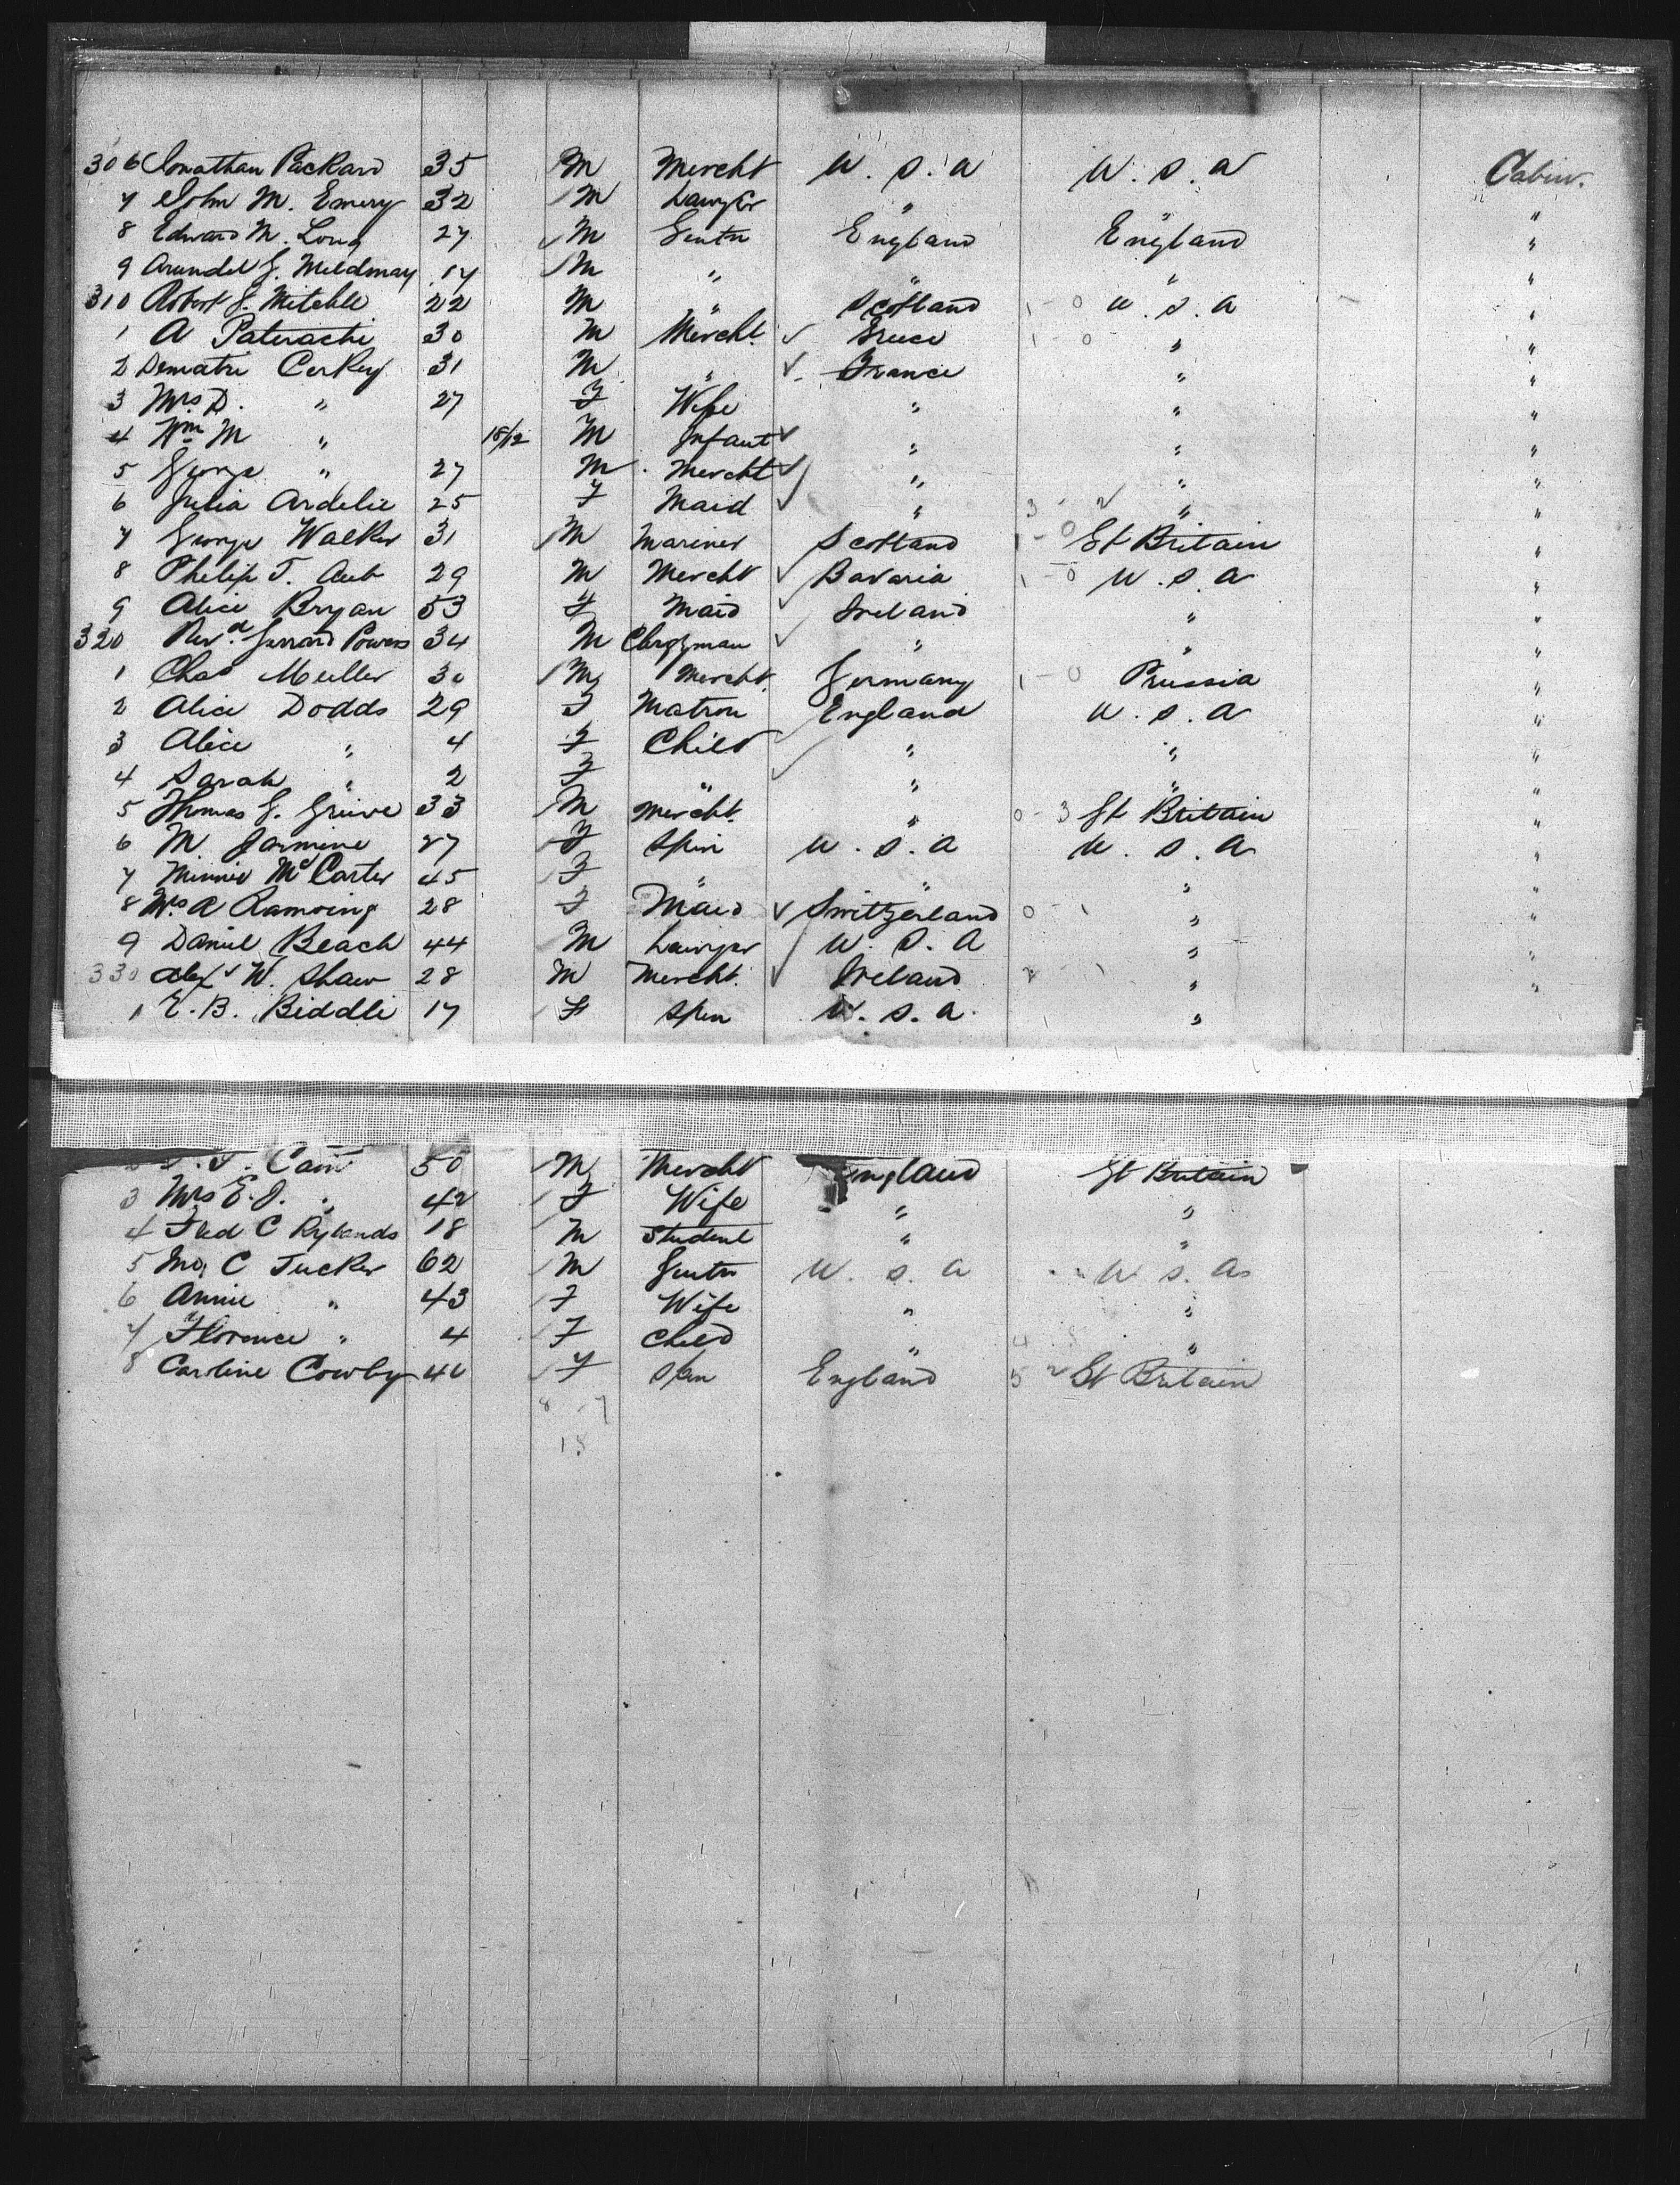 306 Jonathan Packard 35 M Mercht U.S.A U.S.A Cabin.
7 John M. Emery 32 M Lawyer " " "
8 Edward M. Long 27 M Gentn England England "
9 Arundel G. Mildmay 17 M " " " "
310 Robert G. Mitchle 22 M " Scotland U.S.A "
1 A Paterachi 30 M Mercht. Greece " "
2 Dematri Corkey 31 M " France " "
3 Mrs D. " 27 F Wife " " "
4 Wm M " 18/12 M Infant " " "
5 George " 27 M Mercht " " "
6 Julia Ardelie 25 F Maid " " "
7 George Walker 31 M Mariner Scotland Gt Britain "
8 Philip T. Aub 29 M Mercht Bavaria U.S.A "
9 Alice Bryan 53 F Maid Ireland " "
320 Revd. Gerrard Powers 34 M Clergyman " " "
1 Chas Muller 30 M Mercht. Germany Prussia "
2 Alice Dodds 29 F Matron England U.S.A "
3 Alice " 4 F Child " " "
4 Sarah " 2 F " " " "
5 Thomas G. Grieve 33 M Mercht. " Gt Britain "
6 M Jarmine 27 F Spin U.S.A U.S.A "
7 Minnie McCarter 45 F " " " "
8 Mrs A Ramoing 28 F Maid Switzerland " "
9 Daniel Beach 44 M Lawyer U.S.A " "
330 Alexr W. Shaw 28 M Mercht. Ireland " "
1 E.B. Biddle 17 F Spin U.S.A. "
Cain 50 M Mercht England Gt Britain
3 Mrs E.J. " 42 F Wife " "
4 Fred C Rylands 18 M Student " "
5 Jno. C Tucker 62 M Gentn U.S.A U.S.A
6 Annie " 43 F Wife " "
7 Florence " 4 F Child " "
8 Caroline Cowby F Spn England Gt Britain
8 7
15